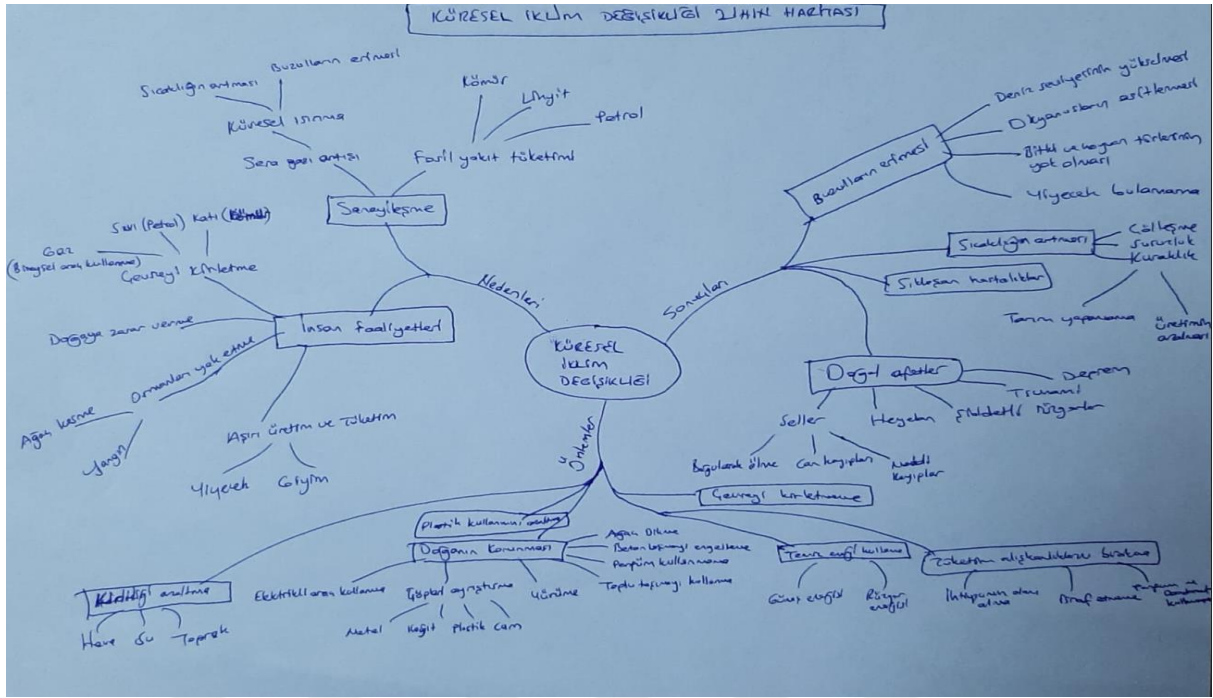 KÜRESEL İKLİM DEĞİŞİKLİĞİ ZİHİN HARİTASI
KÜRESEL
İKLİM
DEĞİŞİKLİĞİ
Nedenleri
Sanayileşme
Sera gazı artışı
Küresel ısınma
Sıcaklığın artması
Buzulların erimesi
Fosil yakıt tüketimi
Kömür
Linyit
Petrol
İnsan faaliyetleri
Çevreyi kirletme
Sıvı (Petrol)
Katı
Gaz
(Bireysel araç kullanma)
Doğaya zarar verme
Ormanları yok etme
Ağaç kesme
Yangın
Aşırı üretim ve Tüketim
Yiyecek
Giyim
Sonuçları
Buzulların erimesi
Deniz seviyesinin yükselmesi
Okyanusların asitlenmesi
Bitki ve hayvan türlerinin
yok olması
Yiyecek bulamama
Sıcaklığın artması
Çölleşme
Susuzluk
Kuraklık
Tarım yapamama
Üretimin
azalması
Sıklaşan hastalıklar
Doğal afetler
Deprem
Tsunami
Şiddetli Rüzgarlar
Heyelan
Seller
Boğularak ölme
Can kayıpları
Maddi
kayıplar
Önlemler
Çevreyi kirletmeme
Plastik kullanımı azaltma
Doğanın korunması
Ağaç Dikme
Betonlaşmayı engelleme
Parfüm kullanmama
Toplu taşımayı kullanma
Yürüme
Elektrikli araç kullanma
Çöpleri ayrıştırma
Metal
Kağıt
Plastik
Cam
Kirliliği azaltma
Hava
Su
Toprak
Temiz enerji kullanma
Güneş enerjisi
Rüzgar
enerjisi
Tüketim alışkanlıklarını bırakma
İhtiyacın olanı
alma
İsraf etmeme